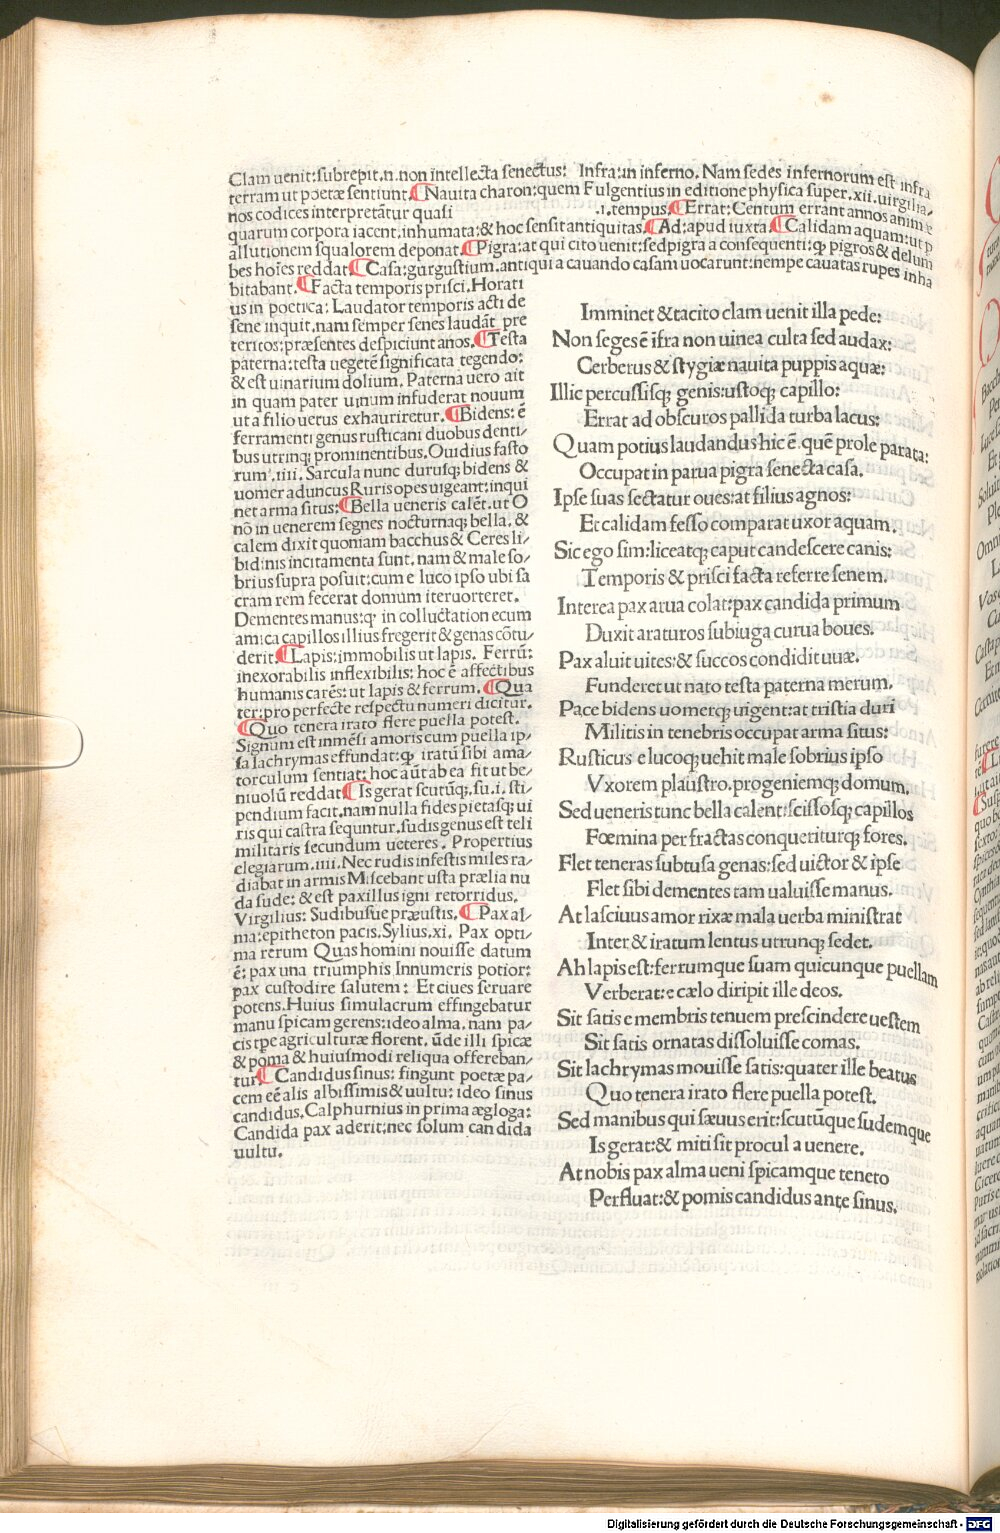 Clam uenit:subrepit.n.non intellecta senectus: Infra:in inferno. Nam sedes infernorum est infra
terram ut poetæ sentiunt.¶Nauita charon:quem Fulgentius in editione physica super.xii.uirgilia,
nos codices interpretãtur quasi .i.tempus.¶Errat:Centum errant annos animæ
quarum corpora iacent.inhumata:& hoc sensit antiquitas.¶Ad:apud iuxta.¶Calidam aquam:ut p
allutionem squalorem deponat.¶Pigra:at qui cito uenit:sed pigra a consequenti:ꝙ pigros & delum
bes hoĩes reddat.¶Casa:gurgustium.antiqui a cauando casam uocarunt:nempe cauatas rupes inha
bitabant.¶Facta temporis prisci.Horati
us in poetica: Laudator temporis acti de
sene inquit.nam semper senes laudãt pre
teritos:præsentes despiciunt anos.¶Testa
paterna:testa uegetẽ significata tegendo:
& est uinarium dolium. Paterna uero ait
in quam pater uinum infuderat nouum
ut a filio uetus exhauriretur.¶Bidens:ẽ
ferramenti genus rusticani duobus denti/
bus utrinq; prominentibus.Ouidius fasto
rum .iiii. Sarcula nunc durusq; bidens &
uomer aduncus Ruris opes uigeant:inqui
net arma situs:¶Bella ueneris calẽt.ut O
nõ in uenerem segnes nocturnaq; bella. &
calem dixit quoniam bacchus & Ceres li/
bidinis incitamenta sunt. nam & male so/
brius supra posuit:cum e luco ipso ubi sa
cram rem fecerat domum iteruorteret.
Dementes manus:q' in colluctation ecum
amica capillos illius fregerit & genas cõtu/
derit.¶Lapis:immobilis ut lapis. Ferrũ:
inexorabilis inflexibilis: hoc ẽ affectibus
humanis carẽs: ut lapis & ferrum. ¶Qua
ter:pro perfecte respectu numeri dicitur.
¶Quo tenera irato flere puella potest.
Signum est inmẽsi amoris cum puella ip/
sa lachrymas effundat:ꝙ iratũ sibi ama/
torculum sentiat: hoc aũt ab ea fit ut be/
niuolũ reddat¶Is gerat scutũq;.su.i.sti/
pendium facit.nam nulla fides pietasq; ui
ris qui castra sequntur.sudis genus est teli
militaris secundum ueteres. Propertius
elegiarum .iiii. Nec rudis infestis miles ra/
diabat in armis Miscebant usta prælia nu
da sude: & est paxillus igni retorridus.
Virgilius: Sudibusue præustis.¶Pax al/
ma:epitheton pacis.Sylius.xi. Pax opti/
ma rerum Quas homini nouisse datum
ẽ: pax una triumphis Innumeris potior:
pax custodire salutem: Et ciues seruare
potens.Huius simulacrum effingebatur
manu spicam gerens:ideo alma. nam pa/
cis tpe agriculturæ florent. ũde illi spicæ
& poma & huiusmodi reliqua offereban/
tur¶Candidus sinus: fingunt poetæ pa/
cem eẽ alis albissimis & uultu: ideo sinus
candidus.Calphurnius in prima ægloga:
Candida pax aderit:nec solum candida
uultu.
Imminet & tacito clam uenit illa pede:
Non seges ẽ ĩfra non uinea culta sed audax:
Cerberus & stygiæ nauita puppis aquæ:
Illic percussisq; genis:ustoq; capillo:
Errat ad obscuros pallida turba lacus:
Quam potius laudandus hic ẽ. quẽ prole parata:
Occupat in parua pigra senecta casa.
Ipse suas sectatur oues:at filius agnos:
Et calidam fesso comparat uxor aquam.
Sic ego sim:liceatq; caput candescere canis:
Temporis & prisci facta referre senem.
Interea pax arua colat:pax candida primum
Duxit araturos sub iuga curua boues.
Pax aluit uites:& succos condidit uuæ.
Funderet ut nato testa paterna merum.
Pace bidens uomerq; uigent:at tristia duri
Militis in tenebris occupat arma situs:
Rusticus e lucoq; uehit male sobrius ipso
Vxorem plaustro.progeniemq; domum.
Sed ueneris tunc bella calent:scissosq; capillos
Fœmina per fractas conqueriturq; fores.
Flet teneras subtusa genas:sed uictor & ipse
Flet sibi dementes tam ualuisse manus.
At lasciuus amor rixæ mala uerba ministrat
Inter & iratum lentus utrunq; sedet.
Ah lapis est:ferrumque suam quicunque puellam
Verberat:e cælo diripit ille deos.
Sit satis e membris tenuem prescindere uestem
Sit satis ornatas dissoluisse comas.
Sit lachrymas mouisse satis:quater ille beatus
Quo tenera irato flere puella potest.
Sed manibus qui sæuus erit:scutũque sudemque
Is gerat:& miti sit procul a uenere.
At nobis pax alma ueni spicamque teneto
Perfluat:& pomis candidus ante sinus.
Digitalisierung gefördert durch die Deutsche Forschungsgemeinschaft - DFG